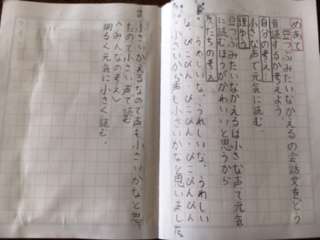 めあて
豆つぶみたいなかえるの会話文をどう
音読するか考えよう
自分の考え
小さな声で元気に読む
理由
豆つぶみたいなかえるは小さな声で元気
に読むほうがかわいいと思うから
友だちの考え
うれしいな、うれしいな、うれしい
な、ぴこぴん、ぴこぴんぴん
小さいから声も小さいかなと思いました。
小さいかえるなので声も小さいかなと思
たので小さい声で読む
〈みんなの考え〉
明るく元気に小さく読む。